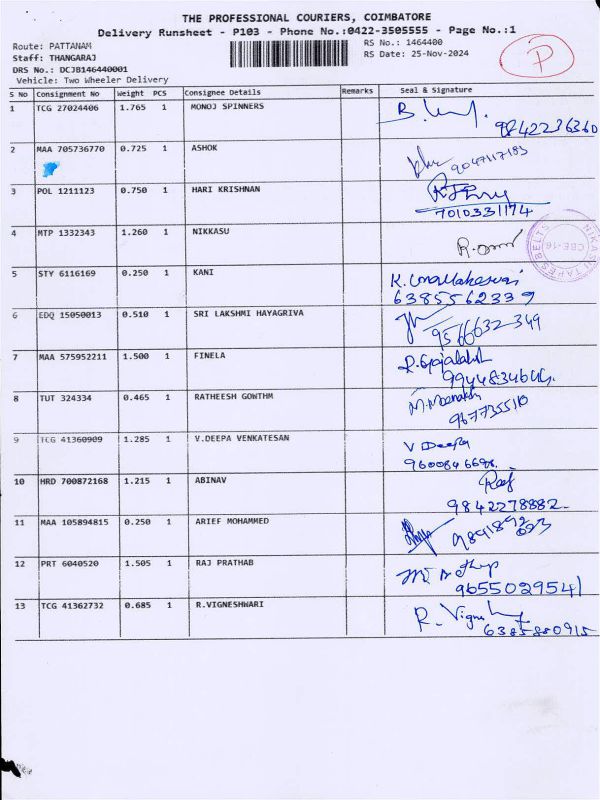 THE PROFESSIONAL COURIERS, COIMBATORE
Delivery Runsheet - P103 - Phone No.:0422-3505555 - Page No.:1
Route: PATTANAM
RS No.: 1464400
Staff: THANGARAJ
RS Date: 25-Nov-2024
DRS No.: DCJB146440001
Vehicle: Two Wheeler Delivery
P
S No Consignment No Weight PCS Consignee Details Remarks Seal & Signature
1 TCG 27024406 1.765 1 MONOJ SPINNERS
9842236360
2 MAA 705736770 0.725 1 ASHOK
9047117183
3 POL 1211123 0.750 1 HARI KRISHNAN
7010331174
4 MTP 1332343 1.260 1 NIKKASU
NIKASU TAPES BELTS
CBE-16
5 STY 6116169 0.250 1 KANI K. UmaMaheswari
6385562339
6 EDQ 15050013 0.510 1 SRI LAKSHMI HAYAGRIVA
9566632349
7 MAA 575952211 1.500 1 FINELA
8 TUT 324334 0.465 1 RATHEESH GOWTHM M. Meenakshi
9677355110
9 TCG 41360909 1.285 1 V.DEEPA VENKATESAN V Deepa
9600846698.
10 HRD 700872168 1.215 1 ABINAV
9842278882.
11 MAA 105894815 0.250 1 ARIEF MOHAMMED
12 PRT 6040520 1.505 1 RAJ PRATHAB
9655029541
13 TCG 41362732 0.685 1 R.VIGNESHWARI
6385880915